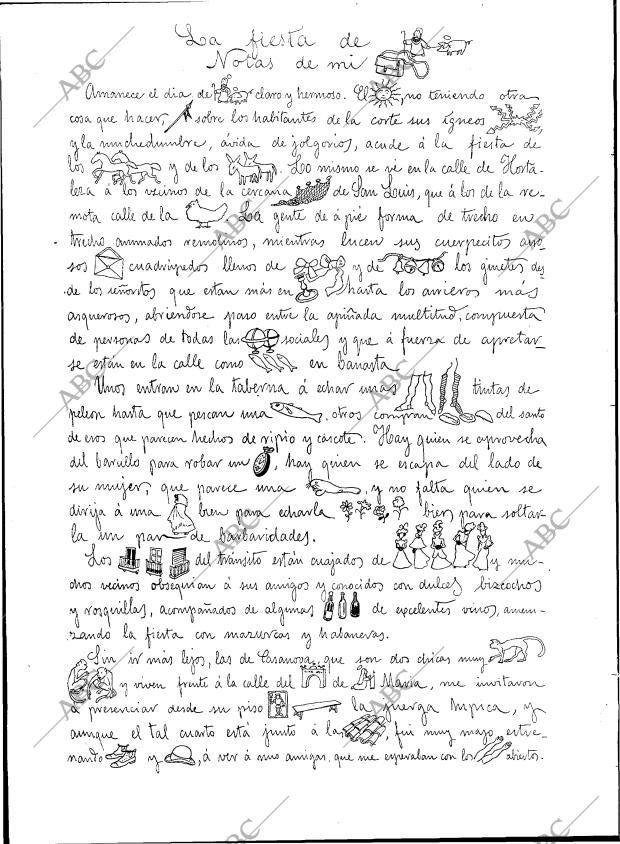 La fiesta de
Notas de mi
Amanece el dia de claro y hermoso. El, no teniendo otra
cosa que hacer, sobre los habitantes de la corte sus ígneos
y la muchedumbre, ávida de jolgorios, acude á la fiesta de
los y de los. Lo mismo se ve en la calle de Horta-
leza á los vecinos de la cercana de San Luis, que á los de la re-
mota calle de la. La gente de á pié forma de trecho en
trecho animados remolinos, mientras lucen sus cuerpecitos
sos cuadrúpedos llenos de y de los ginetes des-
de los señoritos que están más en hasta los arrieros más
asquerosos, abriéndose paso entre la apiñada multitud, compuesta
de personas de todas las sociales y que á fuerza de apretar-
se están en la calle como en banasta.
Unos entran en la taberna á echar unas tintas de
peleon hasta que pescan una, otros compran del santo
de esos que parecen hechos de ripio y cascote. Hay quien se aprovecha
del barullo para robar un, hay quien se escapa del lado de
su mujer, que parece una, y no falta quien se
dirija á una bien para echarla bien para soltar-
la un par de barbaridades.
Los del tránsito están cuajados de y mu-
chos vecinos obsequian á sus amigos y conocidos con dulces bizcochos
y rosquillas, acompañados de algunas de excelentes vinos, ameni-
zando la fiesta con mazurcas y habaneras.
Sin ir más lejos, las de Casanova, que son dos chicas muy
y viven frente á la calle del de María, me invitaron
á presenciar desde su piso la juerga hípica, y
aunque el tal cuarto está junto á las, fuí muy majo, estre-
nando y, á ver á mis amigas, que me esperaban con los abiertos.
ABC
ABC
ABC
ABC
ABC
ABC
ABC
ABC
ABC
ABC
ABC
ABC